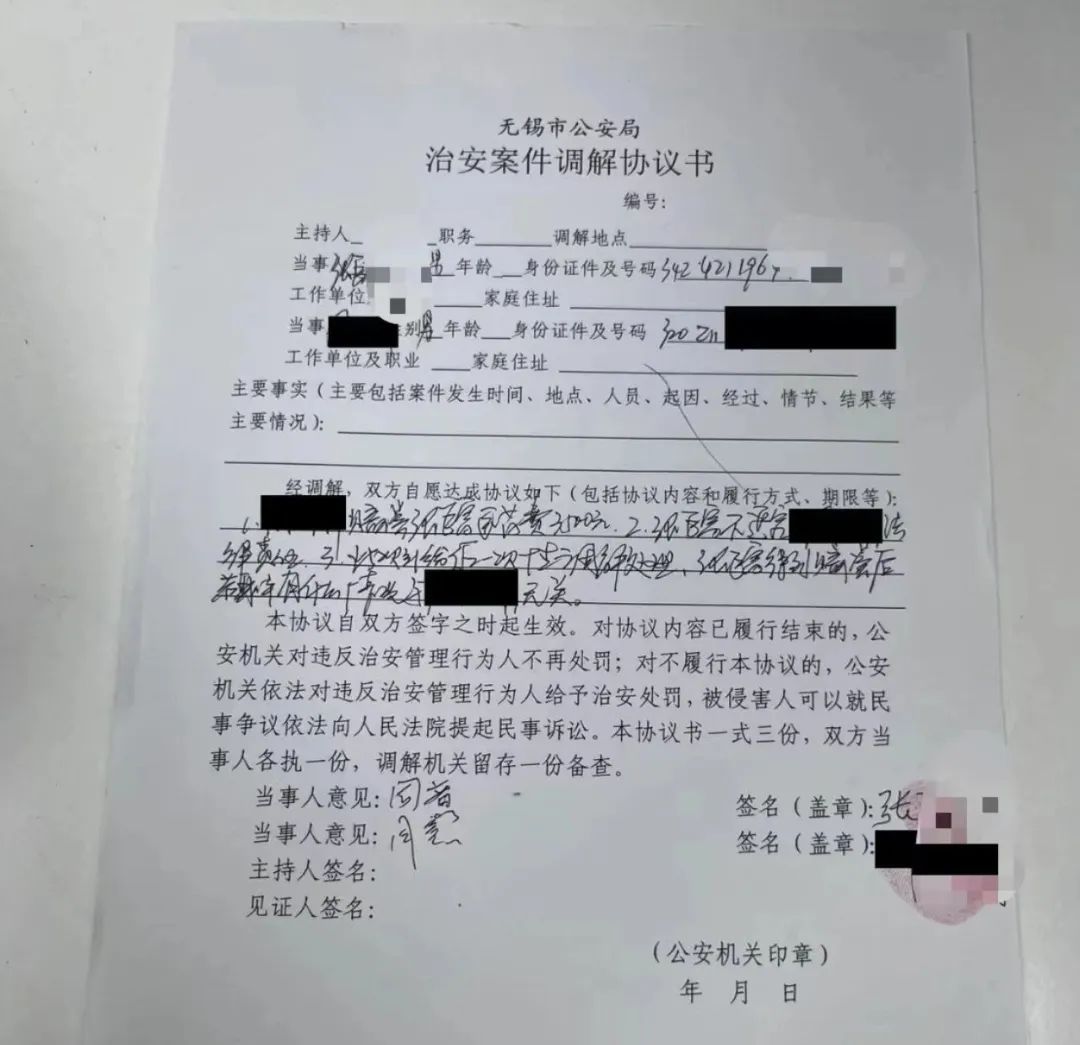 无锡市公安局
治安案件调解协议书
编号:
主持人 职务 调解地点
当事 张 男 年龄 身份证件及号码 342421196
工作单位 家庭住址
当事 性别 男 年龄 身份证件及号码 320211
工作单位及职业 家庭住址
主要事实(主要包括案件发生时间、地点、人员、起因、经过、情节、结果等
主要情况):
经调解,双方自愿达成协议如下(包括协议内容和履行方式、期限等):
1. 赔偿张 费3500元. 2. 张 不追究 法
律责任. 3. 一次性 处理、张 得到赔偿后
若 有什么事发与 无关。
本协议自双方签字之时起生效。对协议内容已履行结束的,公
安机关对违反治安管理行为人不再处罚;对不履行本协议的,公安
机关依法对违反治安管理行为人给予治安处罚,被侵害人可以就民
事争议依法向人民法院提起民事诉讼。本协议书一式三份,双方当
事人各执一份,调解机关留存一份备查。
当事人意见:同意 签名(盖章):张
当事人意见:同意 签名(盖章):
主持人签名:
见证人签名:
(公安机关印章)
年 月 日